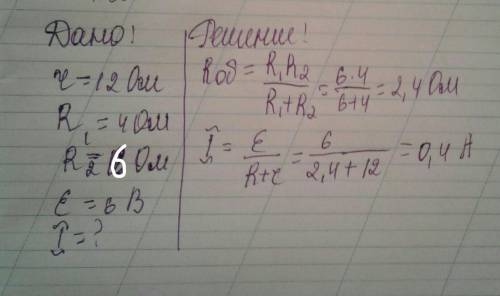 Дано!
r = 12 Ом
R₁ = 4 Ом
R₂ = 6 Ом
ε = 6 В
I = ?
Решение!
Rоб = R₁R₂/R₁+R₂ = 6·4/6+4 = 2,4 Ом
I = ε/R+r = 6/2,4+12 = 0,4 А